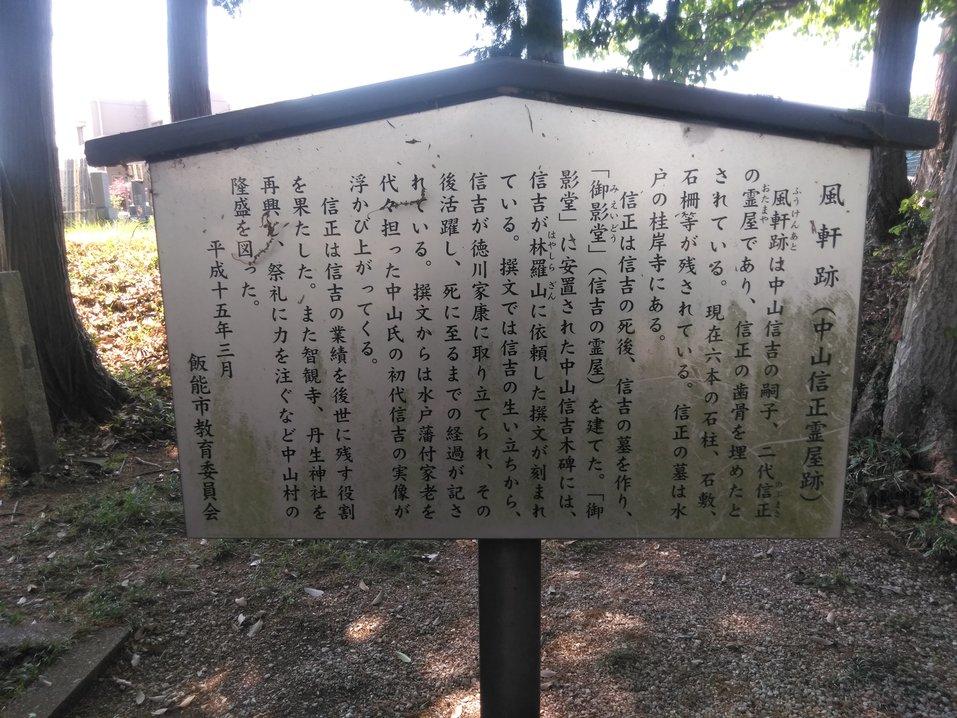 風軒跡(中山信正霊屋跡)
風軒跡は中山信吉の嗣子、二代信正
の霊屋であり、信正の歯骨を埋めたと
されている。現在六本の石柱、石敷、
石柵等が残されている。信正の墓は水
戸の桂岸寺にある。
信正は信吉の死後、信吉の墓を作り、
「御影堂」(信吉の霊屋)を建てた。「御
影堂」に安置された中山信吉木碑には、
信吉が林羅山に依頼した撰文が刻まれ
ている。撰文では信吉の生い立ちから、
信吉が徳川家康に取り立てられ、その
後活躍し、死に至るまでの経過が記さ
れている。撰文からは水戸藩付家老を
代々担った中山氏の初代信吉の実像が
浮かび上がってくる。
信正は信吉の業績を後世に残す役割
を果たした。また智観寺、丹生神社を
再興し、祭礼に力を注ぐなど中山村の
隆盛を図った。
平成十五年三月
飯能市教育委員会
ふうけんあと
のぶまさ
おたまや
みえいどう
はやしらざん